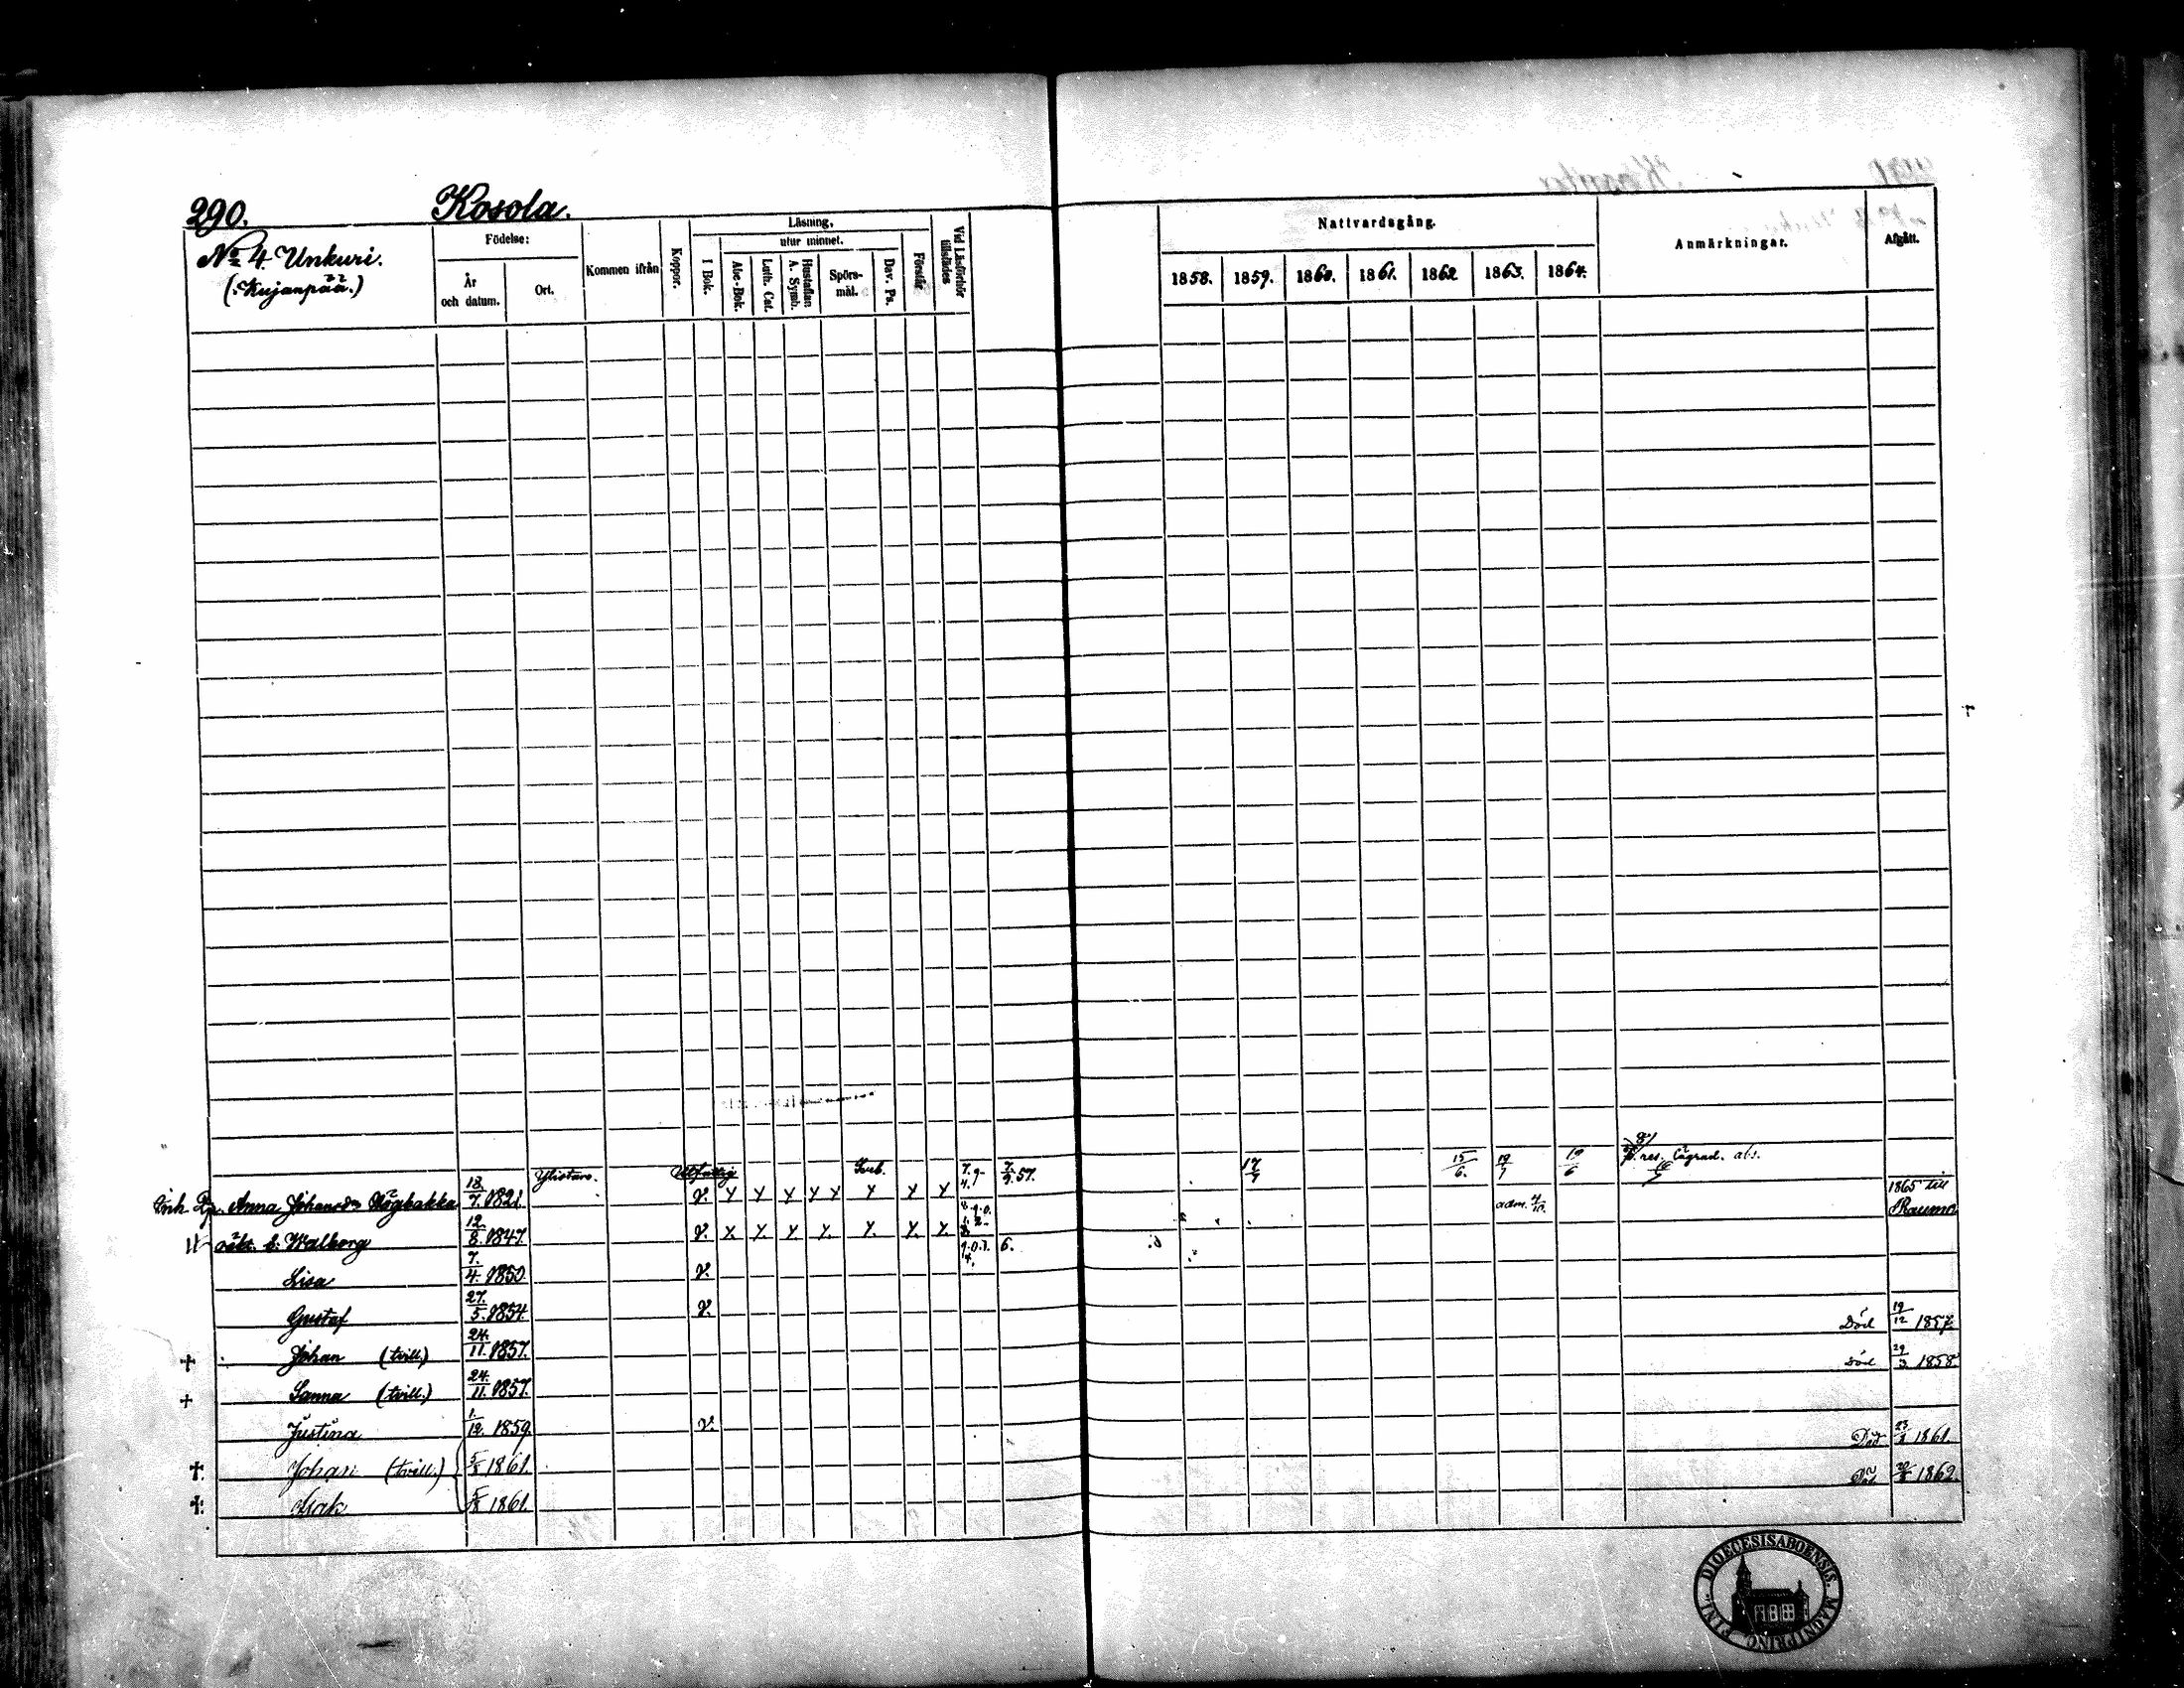 290. Kosola.
No 4. Unkuri.
(:Kujanpää.)
Födelse:
År och datum.
Ort.
Kommen ifrån
Koppor.
Läsning,
I Bok.
utur minnet.
Abc-Bok.
Luth. Cat.
Hustaflan A. Symb.
Spörsmål.
Dav. Ps.
Förstår
Vid Läsförhör tillstädes
Nattvardsgång.
1858. 1859. 1860. 1861. 1862 1863. 1864.
Anmärkningar.
Afgått.
Anna 18/7. 1821. Ylistaro. 7/9. 57. 17/7 15/6. 19/7 19/6
oäkt. b: Walborg 12/8. 1847. adm. 4/10. 1865 till Raumo
Lisa 7/4. 1850. 6.
Gustaf 27/5. 1854.
+ Johan (tvill.) 24/11. 1857. Död 19/12 1857.
+ Sanna (tvill.) 24/11. 1857. död 29/3 1858
Justina 1/12. 1859.
+ Johan (tvill.) 5/8 1861. Död 1861.
+ Isak 5/8 1861. Död 1862.
DIOECESIS ABOENSIS. MAGNI PRINC. FINL.